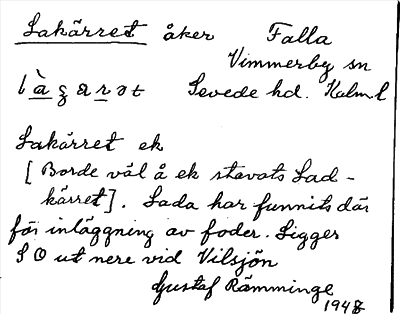 Lakärret åker Falla
Vimmerby sn
Sevede hd. Kalm. l
Lakärret ek
[Borde väl å ek stavats Lad-
kärret]. Lada har funnits där
för inläggning av foder. Ligger
S O ut nere vid Vilsjön
Gustaf Rämminge
1948